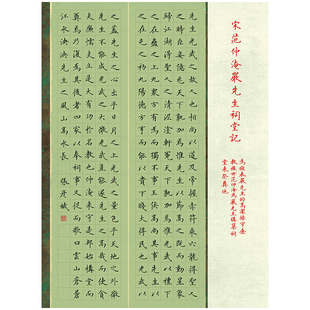 宋范仲淹嚴先生祠堂記
先生光武之故人也相尚以道及帝握赤符乘六龍得聖人
之時臣妾億兆天下孰加焉惟先生以節高之既而動星象
歸江湖得聖人之清泥塗軒冕天下孰加焉惟光武以禮下
之在蠱之上九眾方有為而獨不事王侯高尚其事先生以
之在屯之初九陽德方亨而能以貴下賤大得民也光武以
之蓋先生之心出乎日月之上光武之量包乎天地之外微
先生不能成光武之大微光武豈能遂先生之高哉而使貪
夫廉懦夫立是大有功於名教也仲淹來守是邦始構堂而
奠焉乃復為其後者四家以奉祠事又從而歌曰雲山蒼蒼
江水泱泱先生之風山高水長